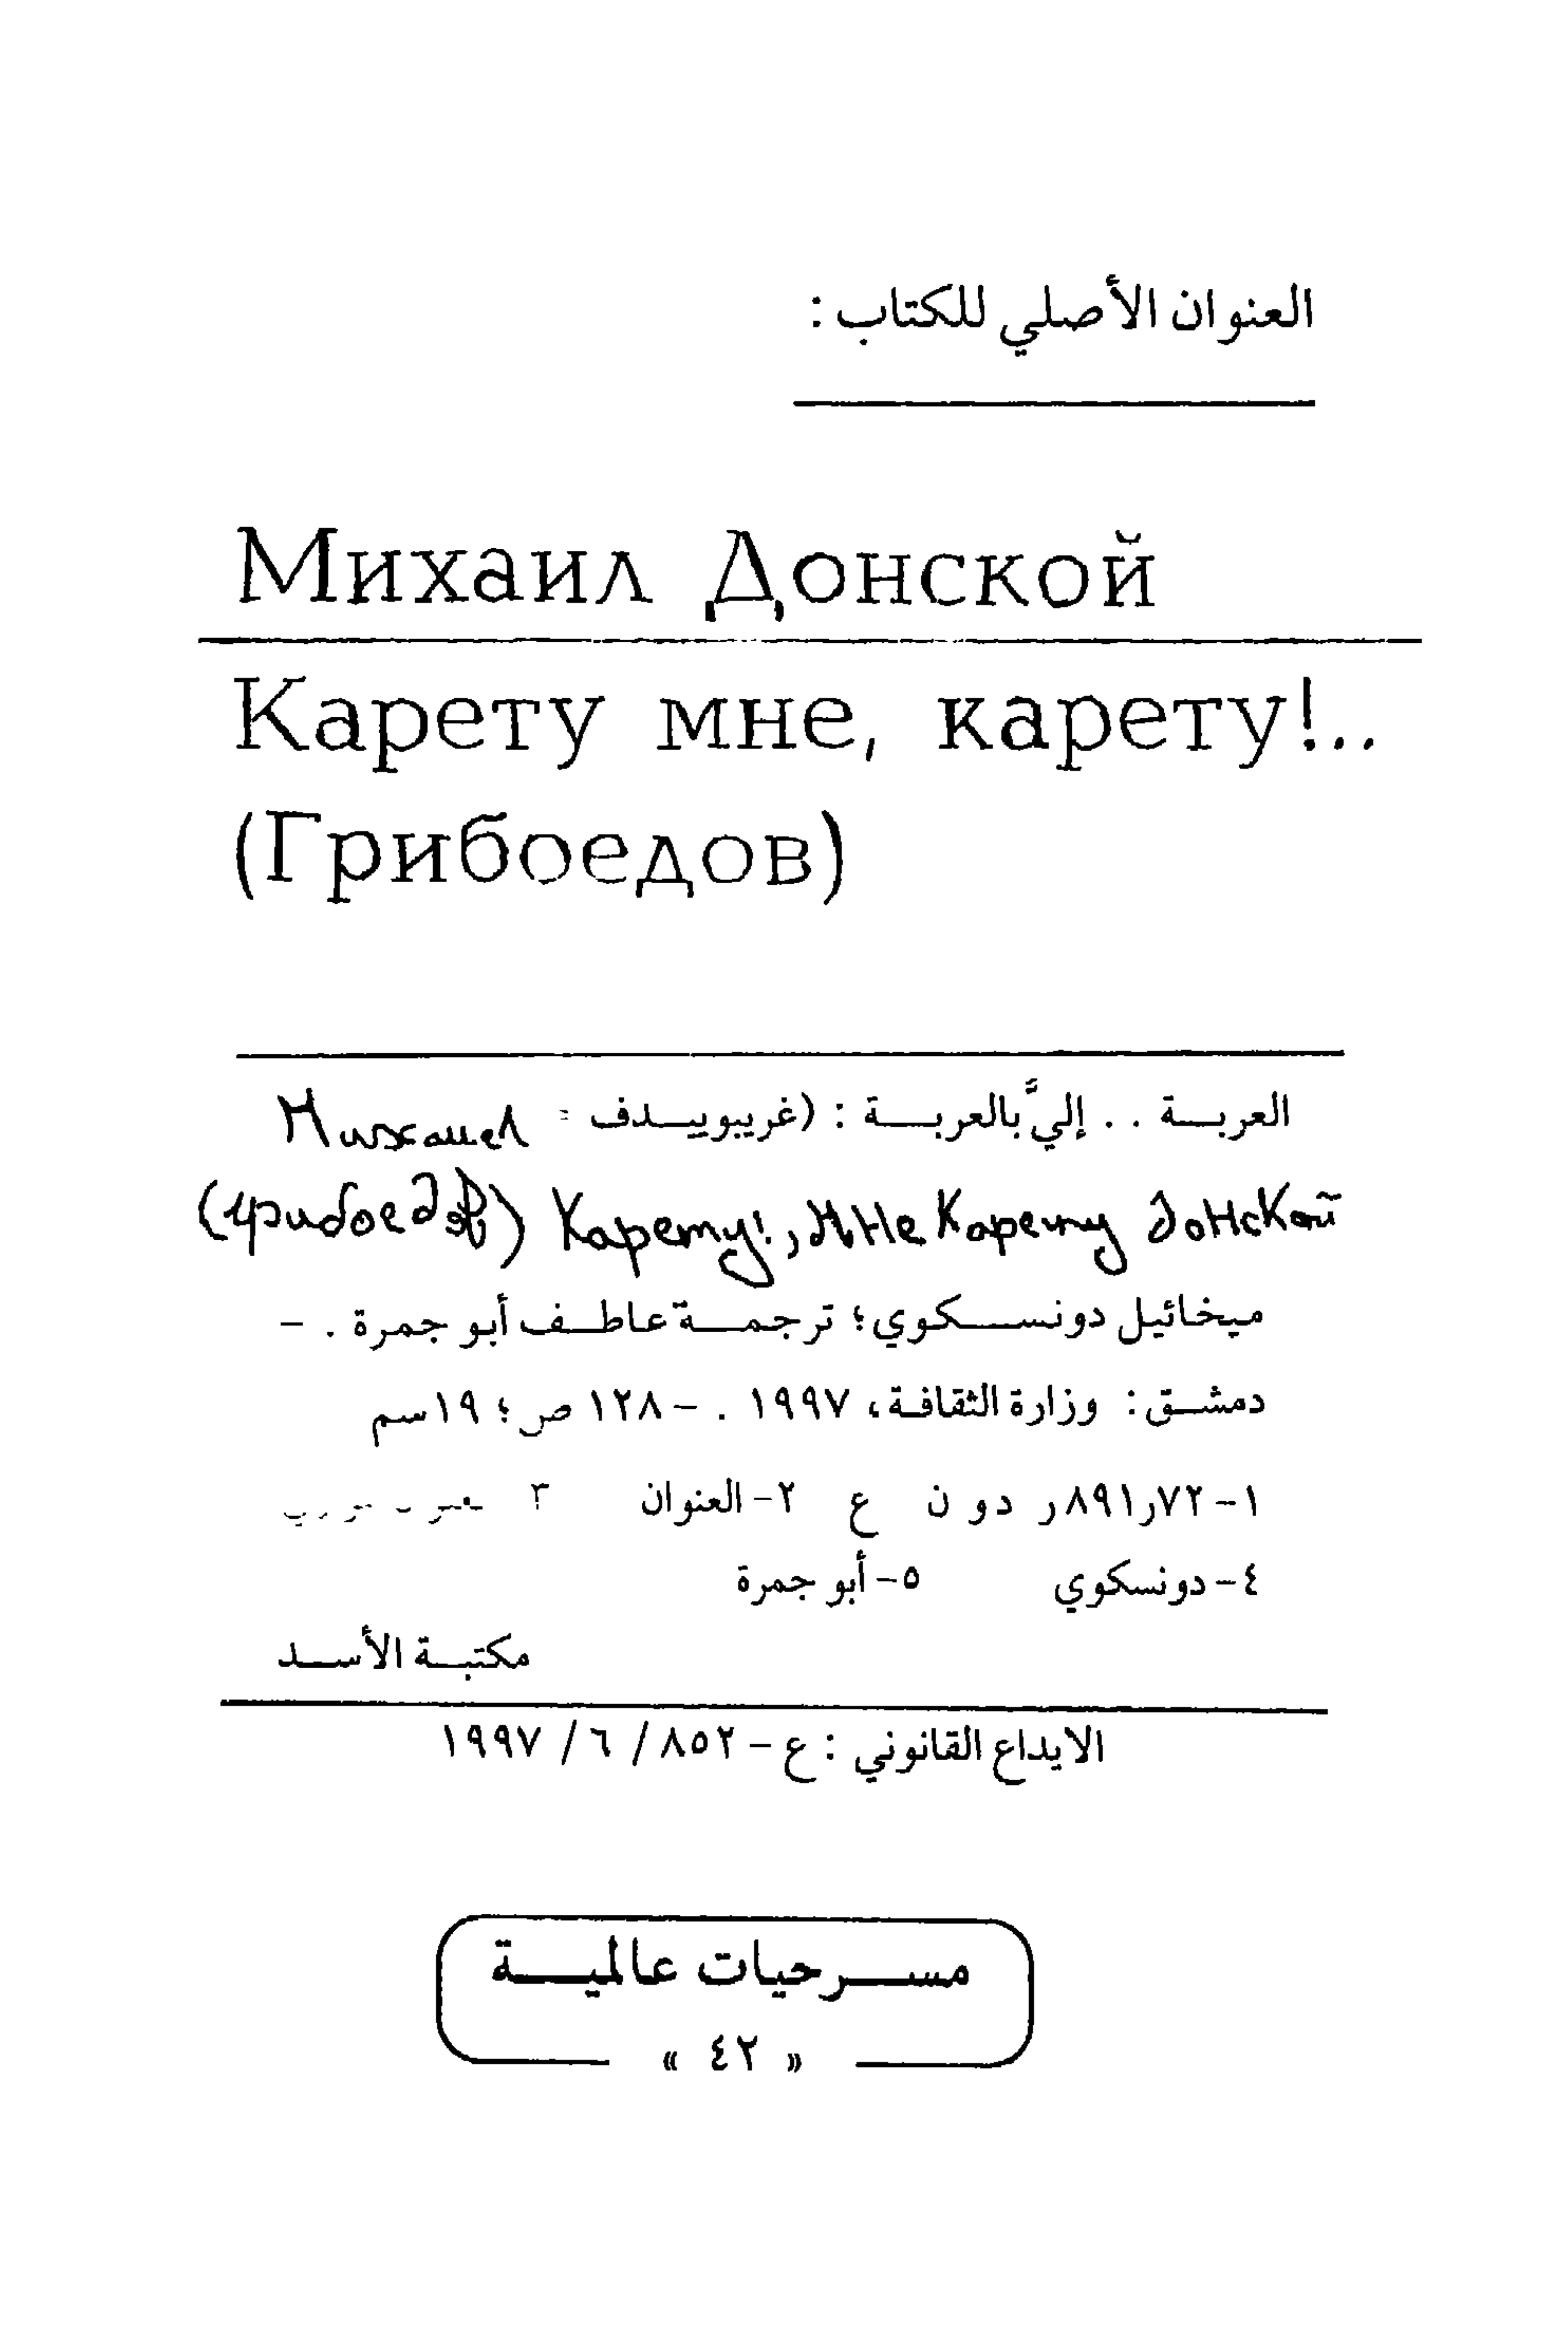 العنوان الأصلي للكتاب :
Михаил Донской
Карету мне, карету!..
(Грибоедов)
العربـــة . . إليَّ بالعربـــة : (غريبوييـــدف = Михаиел
(грибоедов) Карету!, мне Карету Донской
ميخائيل دونســـكوي؛ ترجمـــة عاطـــف أبو جمرة . –
دمشـــق : وزارة الثقافـة، ١٩٩٧ . – ١٢٨ ص؛ ١٩سم
١– ٨٩١٫٧٢ر دو ن ع ٢– العنوان ٣
٤– دونسكوي ٥– أبو جمرة
مكتبـــة الأســـد
الايداع القانوني : ع – ٨٥٢ / ٦ / ١٩٩٧
مســـرحيات عالميـــة
« ٤٢ »